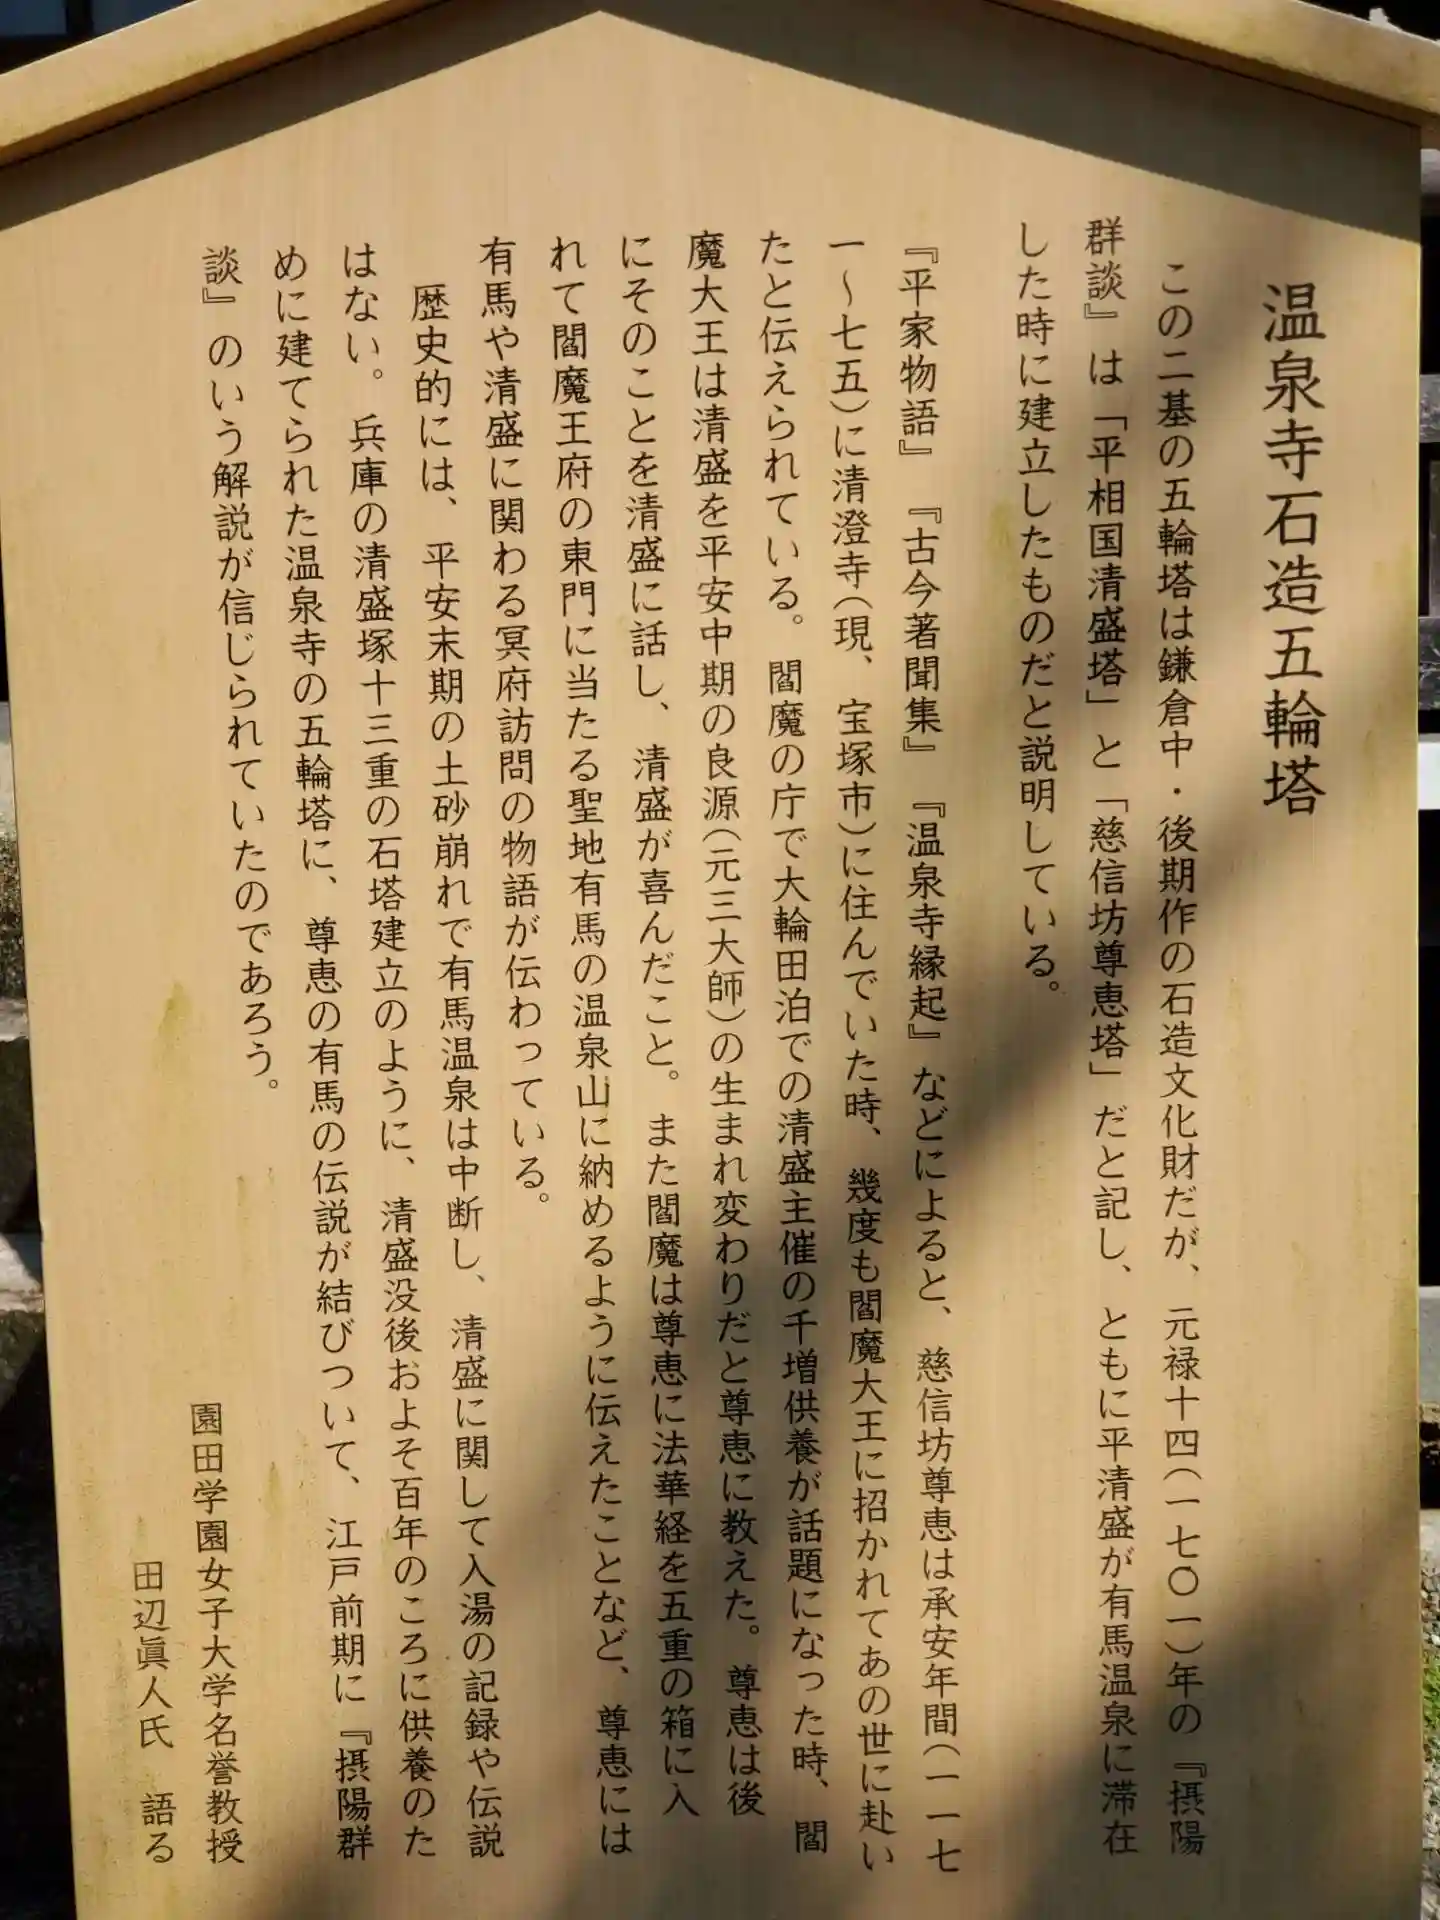 温泉寺石造五輪塔
この二基の五輪塔は鎌倉中・後期作の石造文化財だが、元禄十四(一七〇一)年の『摂陽
群談』は「平相国清盛塔」と「慈信坊尊恵塔」だと記し、ともに平清盛が有馬温泉に滞在
した時に建立したものだと説明している。
『平家物語』『古今著聞集』『温泉寺縁起』などによると、慈信坊尊恵は承安年間(一一七
一～七五)に清澄寺(現、宝塚市)に住んでいた時、幾度も閻魔大王に招かれてあの世に赴い
たと伝えられている。閻魔の庁で大輪田泊での清盛主催の千増供養が話題になった時、閻
魔大王は清盛を平安中期の良源(元三大師)の生まれ変わりだと尊恵に教えた。尊恵は後
にそのことを清盛に話し、清盛が喜んだこと。また閻魔は尊恵に法華経を五重の箱に入
れて閻魔王府の東門に当たる聖地有馬の温泉山に納めるように伝えたことなど、尊恵には
有馬や清盛に関わる冥府訪問の物語が伝わっている。
歴史的には、平安末期の土砂崩れで有馬温泉は中断し、清盛に関して入湯の記録や伝説
はない。兵庫の清盛塚十三重の石塔建立のように、清盛没後およそ百年のころに供養のた
めに建てられた温泉寺の五輪塔に、尊恵の有馬の伝説が結びついて、江戸前期に『摂陽群
談』のいう解説が信じられていたのであろう。
園田学園女子大学名誉教授
田辺眞人氏　語る